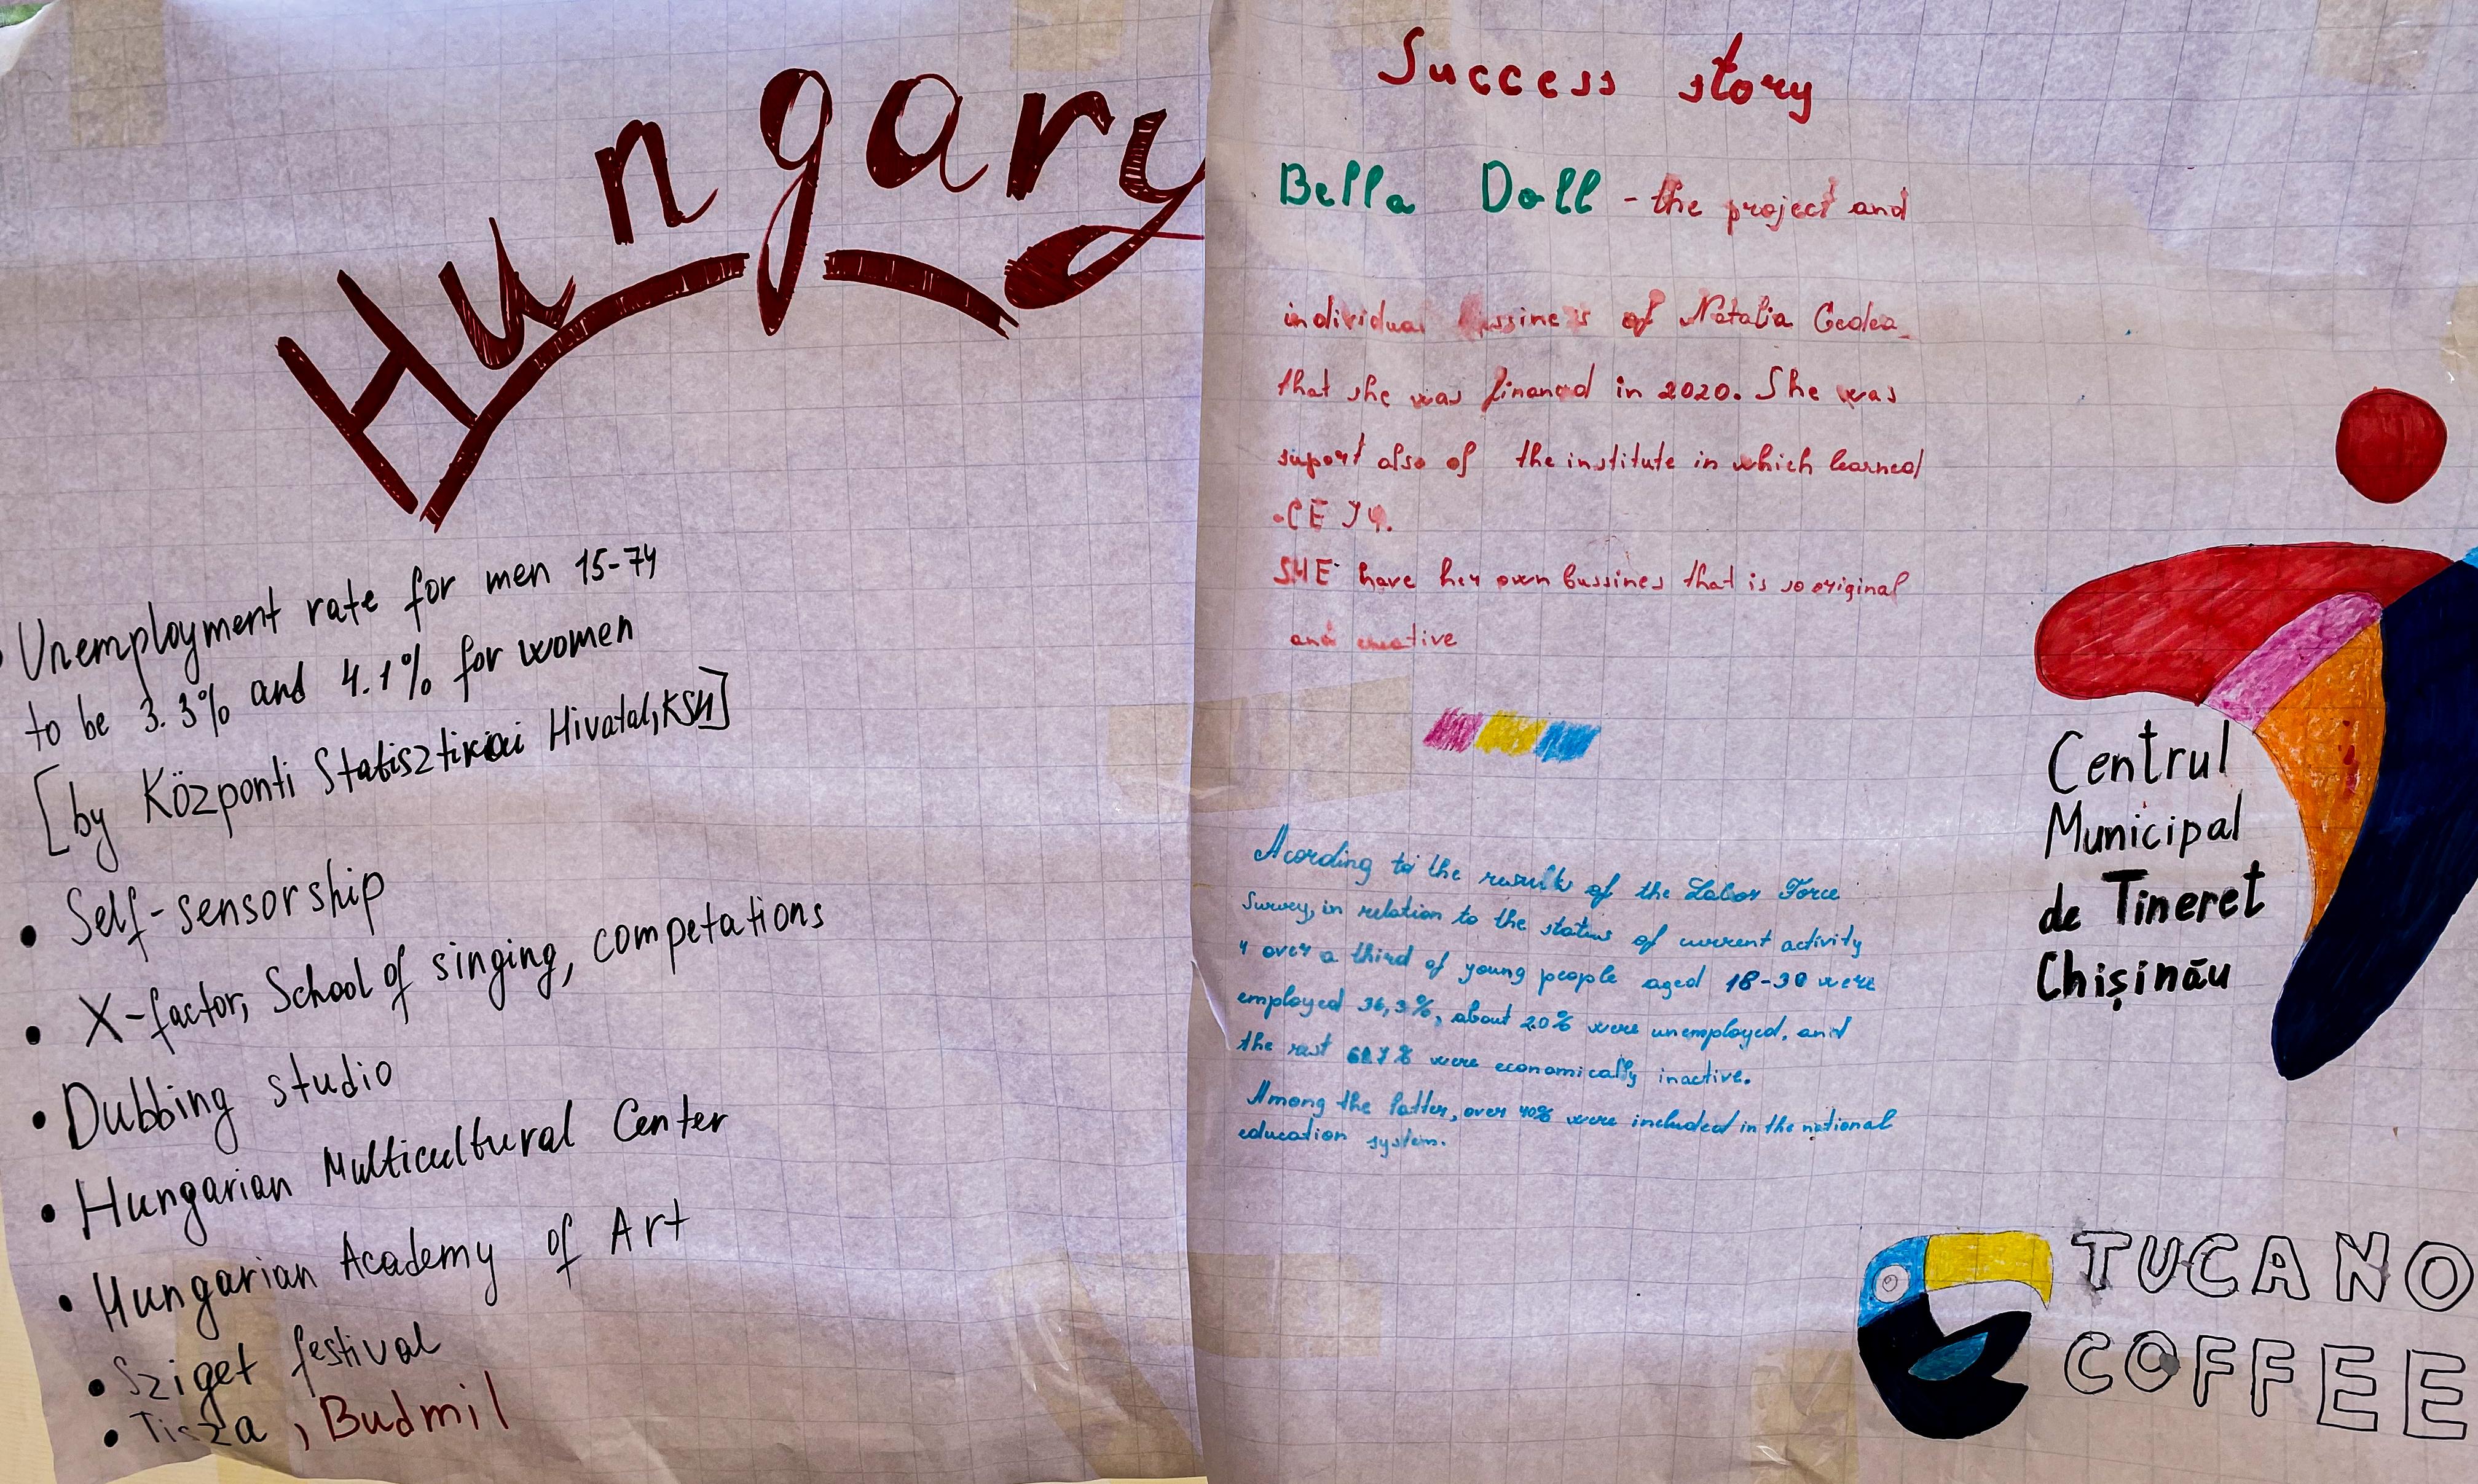 Hungary
Unemployment rate for men 15-74
to be 3.3% and 4.1% for women
[by Központi Statisztikai Hivatal, KSH]
• Self-sensorship
• X-factor, School of singing, competations
• Dubbing studio
• Hungarian Multicultural Center
• Hungarian Academy of Art
• Sziget festival
• Tisza, Budmil
Success story
Bella Doll - the project and
individual bussiness of Natalia
that she was financed in 2020. She was
suport also of the institute in which learned
SHE have her own bussines that is so original
and creative
Acording to the result of the Labor Force
Survey, in relation to the status of current activity
over a third of young people aged 18-30 were
employed 36,3%, about 2.0% were unemployed, and
the rest were economically inactive.
Among the latter, over 40% were included in the national
education system.
Centrul
Municipal
de Tineret
Chișinău
TUCANO
COFFEE